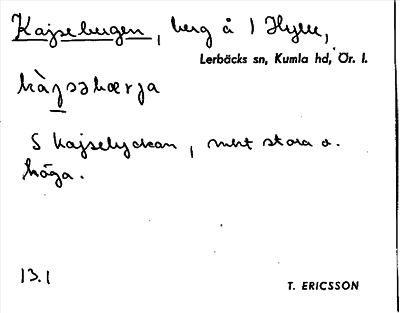 Kajsebergen, berg å 1 Hytte,
Lerbäcks sn, Kumla hd, Ör. l.
S Kajselyckan, mkt stora o.
höga.
13.1
T. ERICSSON